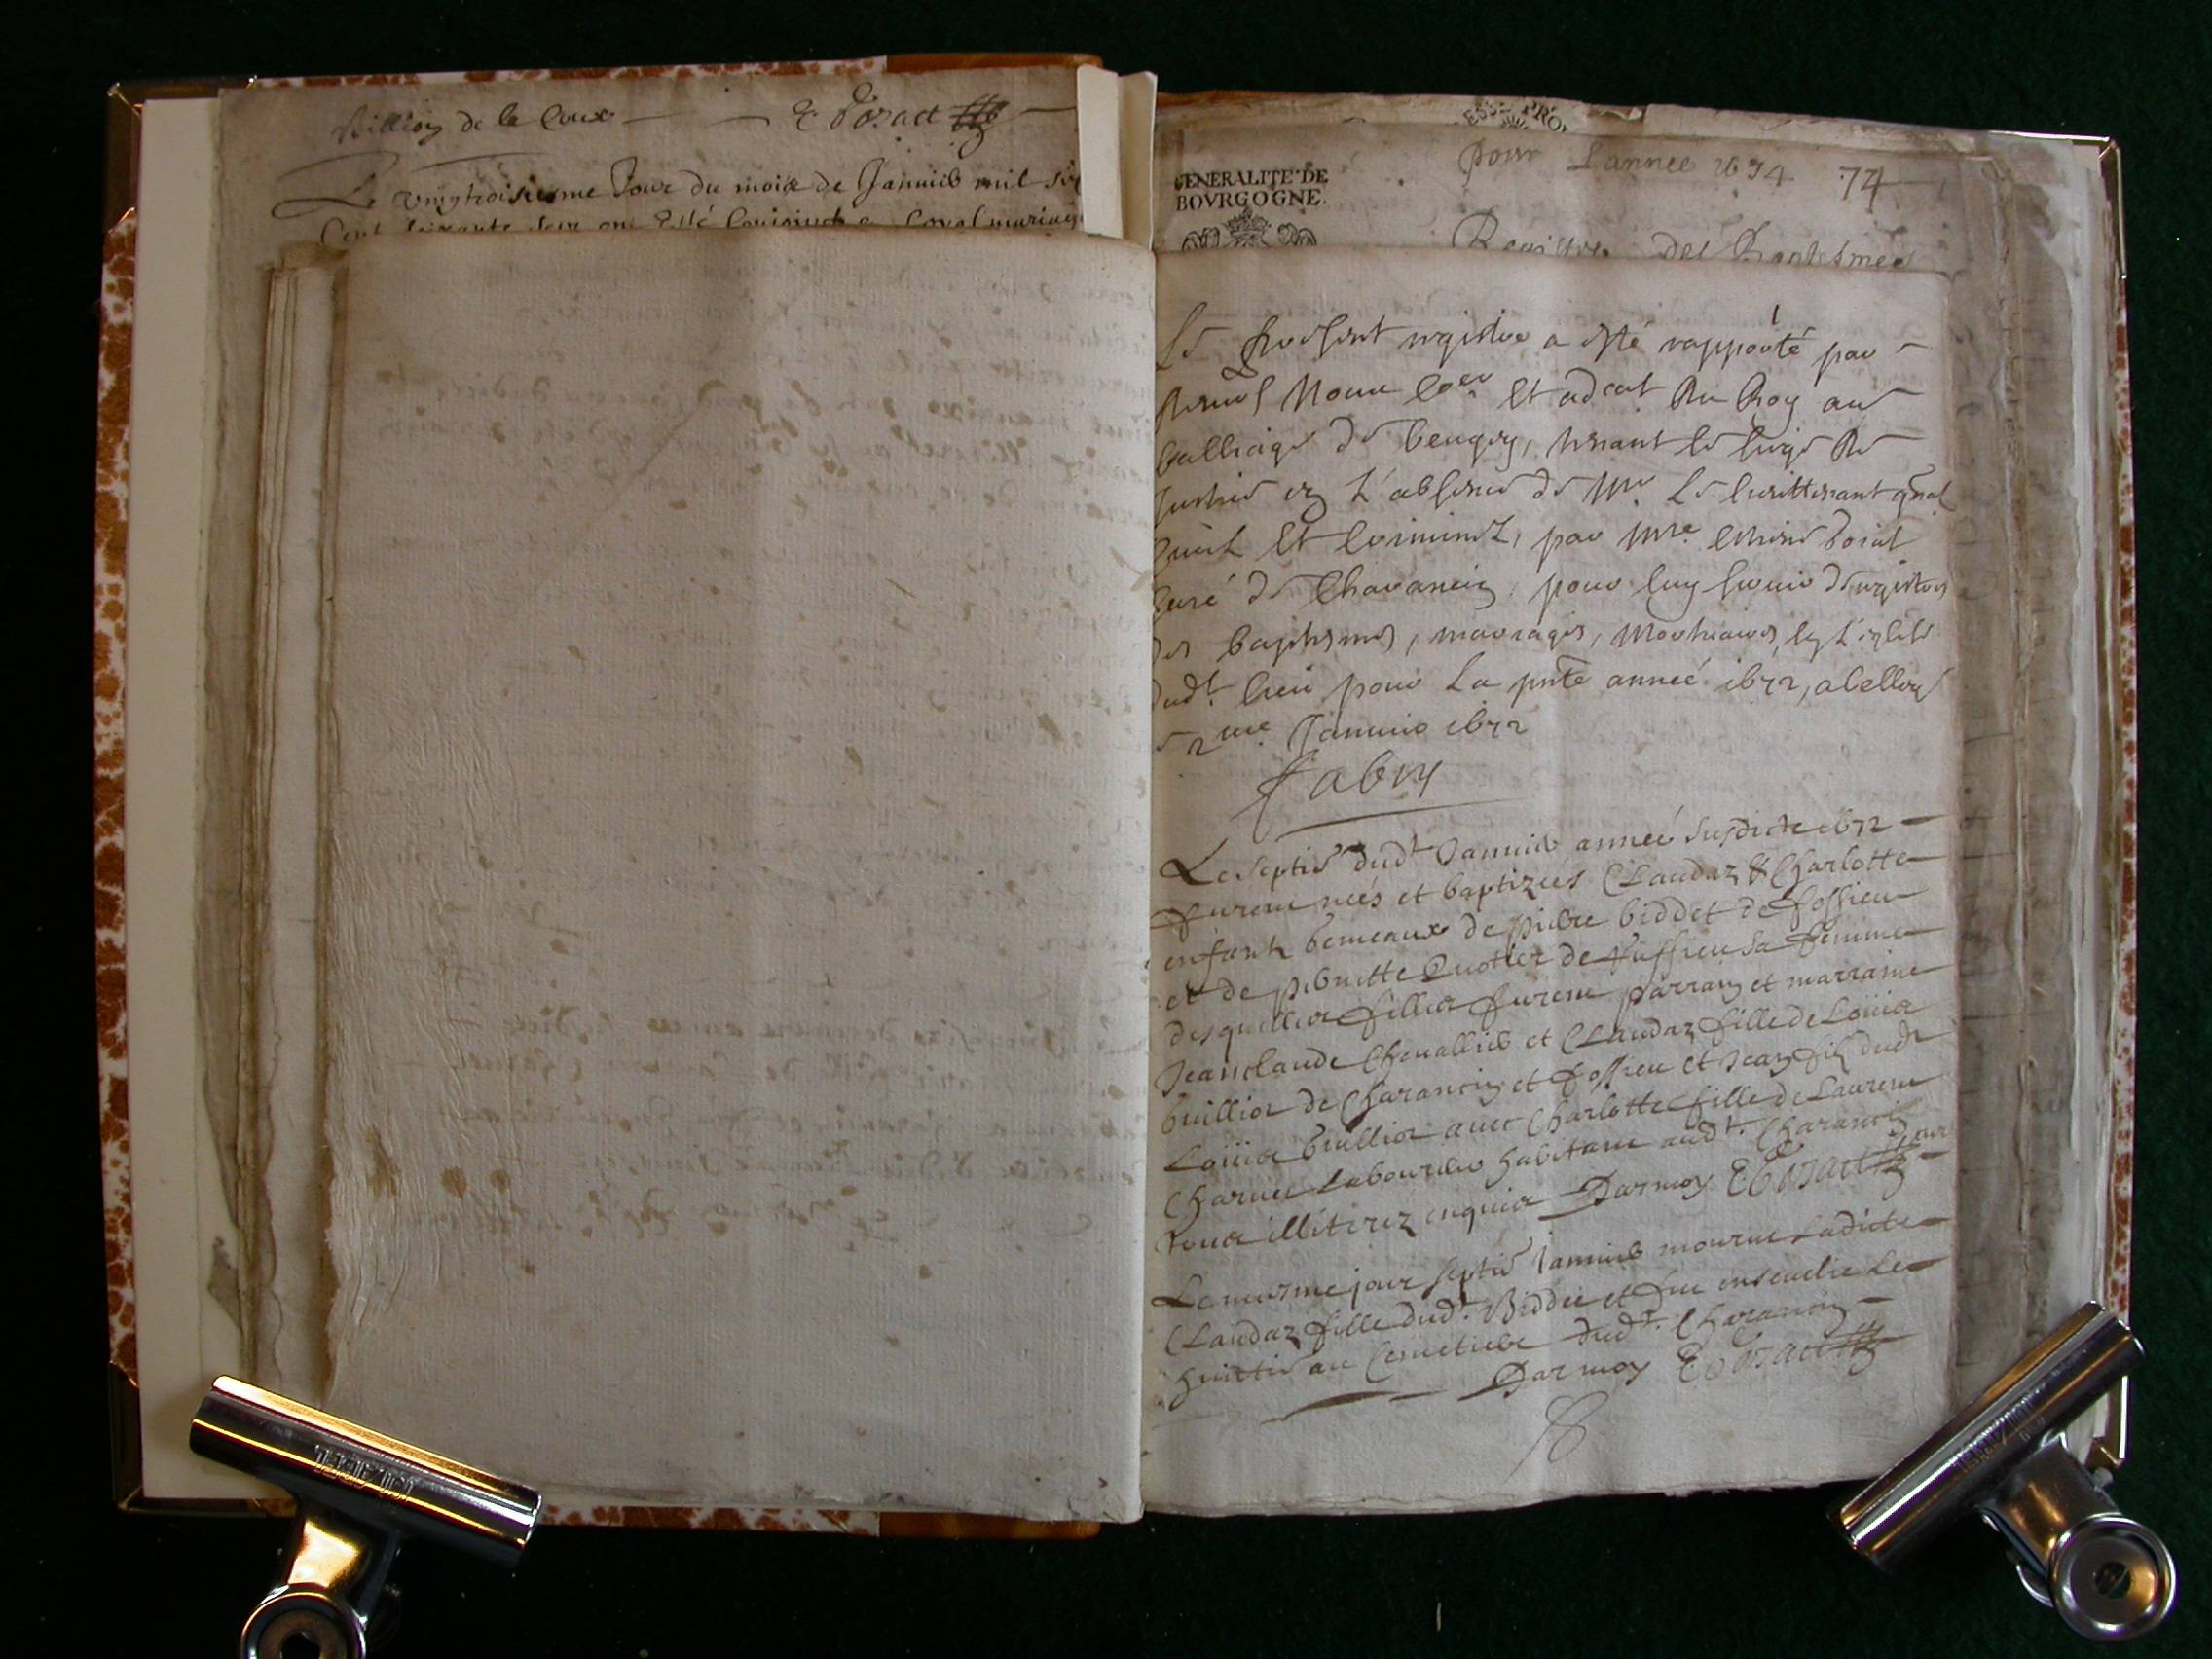 de la Coux E Bozact
Le vingtroisiesme Jour du moix de Januier mil six
Cent
GENERALITE DE
BOVRGOGNE.
pour L'année 1674 74
Registre des Baptesmes
Le present registre a esté rapporté par
et adcat du Roy au
balliage de beugey, tenant le siege de
Justice en L'absence de Mre Le lieuttenant gnal
ciuil et criminel, par Mre
curé de Charancin, pour luy seruir de registre
des baptesmes, mariages, Mortuaires, en L'eglise
dudt lieu pour La pnte année 1672, a belley
ce 2me Januier 1672
fabry
Le septie dudt Januier année susdicte 1672
furent nées et baptizées Claudaz & Charlotte
enfants bemeaux de pierre biddet de fossieu
et de pernette de Ruffieu sa femme
desquelles filles furent parrain et marraine
Jeanclaude Cheuallier et Claudaz fille de Louis
buillioz de Charancin et fossieu et Jean fils dudt
Louis buillioz auec Charlotte fille de Laurent
Charuet Laboureur habitant audt Charancin
tous illiterez enquis Par moy E Bozact
Le mesme jour septie Januier mourut Ladicte
Claudaz fille dudt Biddet et fut enseuelie Le
huictie au Cemetiere dudt Charancin
Par moy E Bozact